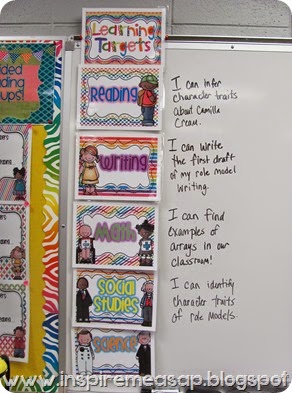 Learning
Targets
Reading
I can infer
character traits
about Camilla
Cream.
Writing
I can write
the first draft
of my role model
writing.
Math
I can find
examples of
arrays in our
classroom!
Social
Studies
I can identify
character traits
of role models.
Science
www.inspiremeasap.blogspot